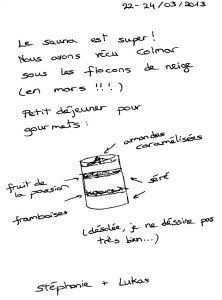 22-24/03/2013
Le sauna est super!
Nous avons vécu Colmar
sous les flocons de neige
(en mars !!!)
Petit déjeuner pour
gourmets:
amandes
caramélisées
fruit de
la passion
séré
framboises
(désolée, je ne déssine pas
très bien...)
Stéphanie + Lukas